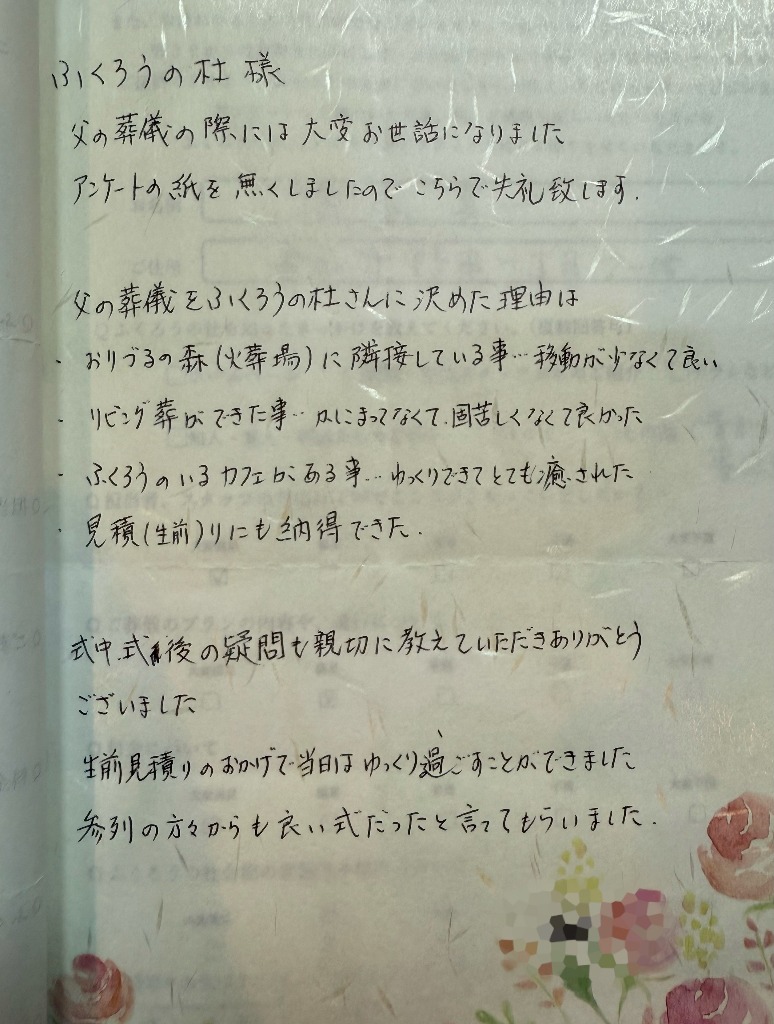 ふくろうの杜 様
父の葬儀の際には大変お世話になりました
アンケートの紙を無くしましたのでこちらで失礼致します.
父の葬儀をふくろうの杜さんに決めた理由は
・ おりづるの森(火葬場)に隣接している事…移動が少なくて良い
・ リビング葬ができた事…かしこまってなくて.固苦しくなくて良かった
・ ふくろうのいるカフェがある事…ゆっくりできてとても癒された
・ 見積(生前)りにも納得できた.
式中.式後の疑問も親切に教えていただきありがとう
ございました
生前見積りのおかげで当日はゆっくり過ごすことができました
参列の方々からも良い式だったと言ってもらいました.
ご住所